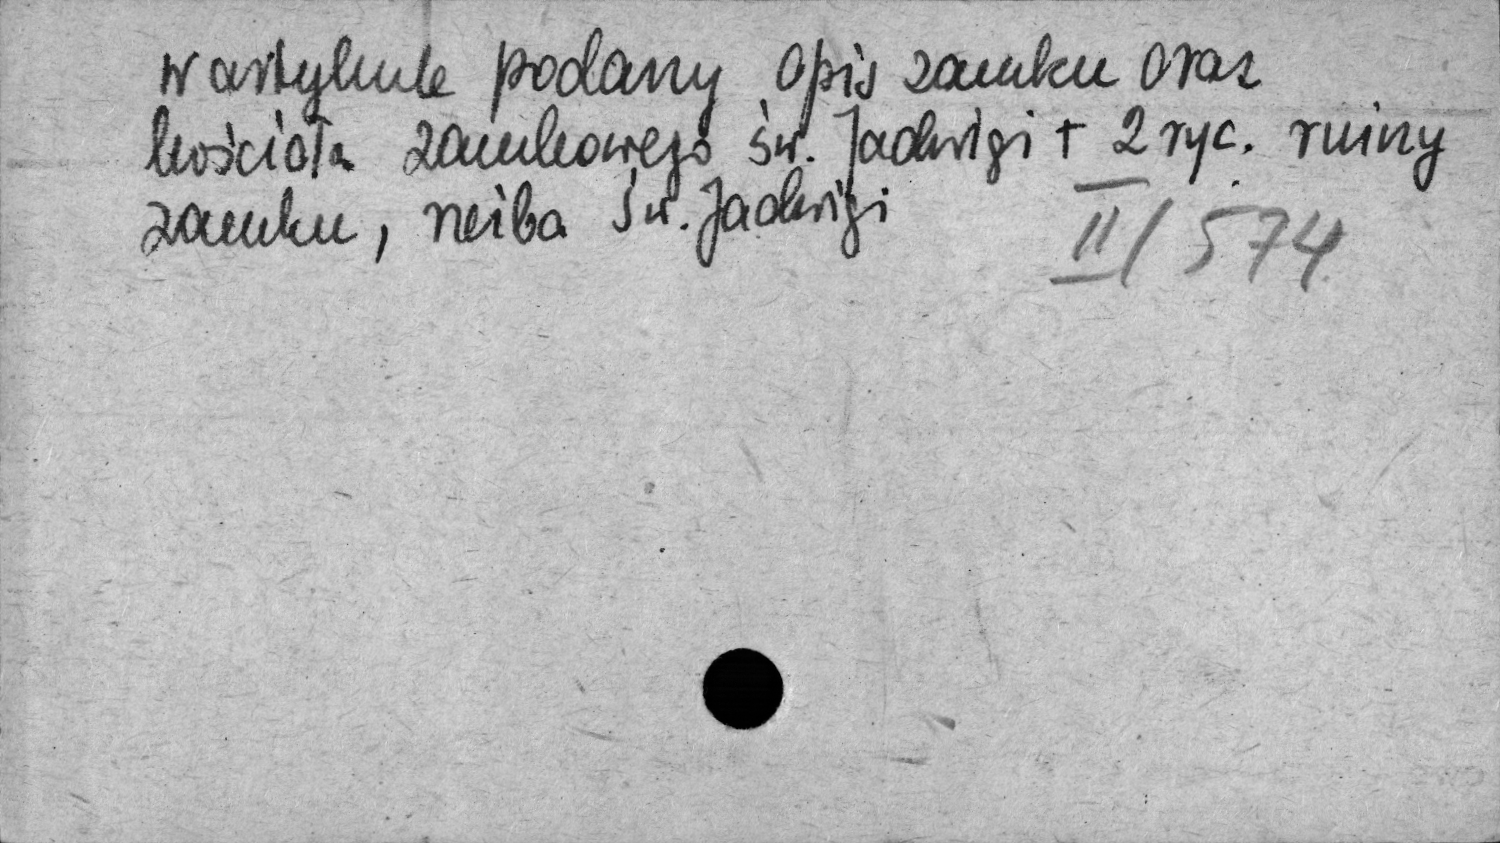 w artykule podany opis zamku oraz
kościoła zamkowego św. Jadwigi + 2 ryc. ruiny
zamku, rzeźba św. Jadwigi
II/574